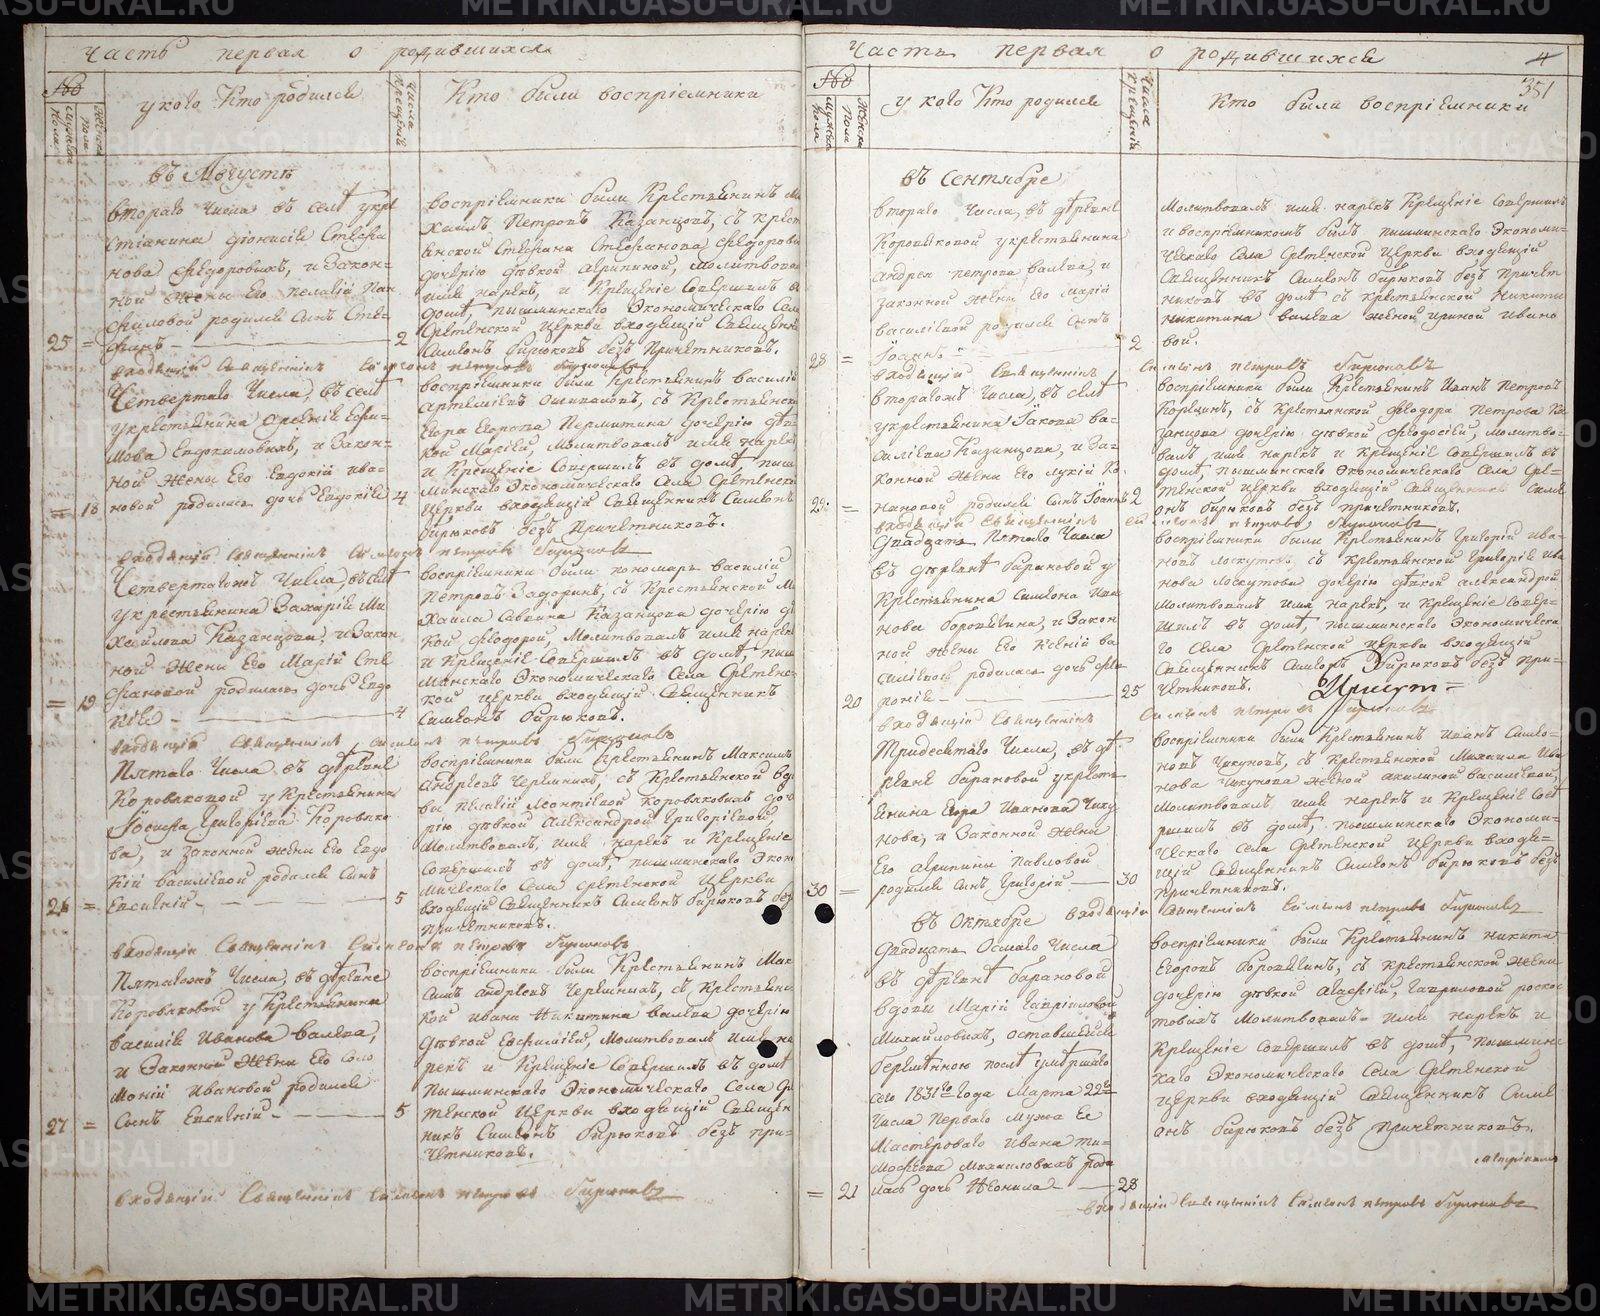 Часть первая о родившихся
№
Мужеска пола
Женска пола
у кого Кто родился
Числа Крещенiй
Кто были воспрiемники
въ Августѣ
втораго Числа въ селѣ укре
стiанина Дiонисiя Стефа
нова Ѳедоровыхъ, и Закон-
ной жены Его Пелагiи Пан
филовой родился Сынъ Сте-
25 = фанъ 2
воспрiемники были Крестьянинъ Ми
хаилъ Петровъ Казанцовъ, съ Крест
анской Стефана Стефанова Ѳедорова
дочерiю дѣвкой Агрипиной, Молитвова
имя нарекъ, и Крещенiе Совершилъ въ
домѣ, пышминскаго Экономическаго Села
Срѣтенской церкви входящiй Священни
Симеонъ Бирюковъ безъ Причетниковъ.
входящiй Священникъ Симеонъ петровъ Бирюковъ
Четвертаго Числа, въ селѣ
укрестьянина Арсенiя Ефи-
мова Евдокимовыхъ, и Закон-
ной жены Его Евдокiи Ива-
= 18 новой родилась дочь Евдокiя 4
воспрiемники были Крестьянинъ Василiй
съ Крестьянской
Егора Егорова Пермитина дочерiю дѣв
кой Марiей, Молитвовалъ имя нарекъ
и Крещенiе Совершилъ въ домѣ, пыш
минскаго Экономическаго Села Срѣтенско
Церкви входящiй Священникъ Симеонъ
Бирюковъ безъ Причетниковъ.
входящiй Священникъ Симеонъ петровъ Бирюковъ
Четвертагожъ Числа, въ селѣ
укрестьянина Захарiя Ми
хайлова Казанцова, и Закон
ной жены Его Марiи Сте
фановой родилась дочь Евдо
= 19 кiя 4
воспрiемники были пономарь Василiй
Петровъ Задоринъ, съ Крестьянской Ми
хаила Саввина Казанцова дочерiю дѣ
кой Ѳедорой, Молитвовалъ имя нарекъ
и Крещенiе Совершилъ въ домѣ пыш
минскаго Экономическаго Села Срѣтенс
кой церкви входящiй Священникъ
Симеонъ Бирюковъ.
входящiй Священникъ Симеонъ петровъ Бирюковъ
Пятаго Числа въ деревнѣ
Коровяковой у Крестьянина
Iосифа Григорiева Коровяко
ва, и законной жены Его Евдо
кiи Василiевой родился Сынъ
26 = Евсигнiй 5
воспрiемники были Крестьянинъ Максимъ
Андреевъ Черемныхъ, съ Крестьянской вдо
вы Пелагiи Леонтiевой Коровяковыхъ доче
рiю дѣвкой Александрой Григорiевой,
Молитвовалъ, имя нарекъ и Крещенiе
Совершилъ въ домѣ, пышминскаго Эконо
мическаго Села Срѣтенской Церкви
входящiй Священникъ Симеонъ Бирюковъ без
причетниковъ.
входящiй Священникъ Симеонъ петровъ Бирюковъ
Пятагожъ Числа, въ деревне
Коровяковой у Крестьянина
Василiя Иванова Валева,
и Законной жены Его Соло
монiи Ивановой родился
27 = Сынъ Евсигнiй 5
воспрiемники были Крестьянинъ Мак
симъ Андреевъ Черемныхъ, съ Крестьянс
кой Ивана Никитина Валева дочерiю
дѣвкой Молитвовалъ имя на
рекъ и Крещенiе Совершилъ въ домѣ
Пышминскаго Экономическаго Села Срѣ
тенской Церкви входящiй Священ
никъ Симеонъ Бирюковъ безъ при-
четниковъ.
входящiй Священникъ Симеонъ петровъ Бирюковъ
Часть первая о родившихся
4
351
№
Мужеска пола
Женска пола
у кого Кто родился
Числа Крещенiй
Кто были воспрiемники
въ Сентябре
втораго Числа, въ деревнѣ
Коровяковой укрестьянина
Андрея петрова Валева, и
законной жены Его Марiи
Василiевой родился Сынъ
28 = Iоаннъ 2
Молитвовалъ имя нарекъ Крещенiе Совершилъ
и воспрiемникомъ былъ пышминскаго Экономи-
ческаго Села Срѣтенской Церкви входящiй
Священникъ Симеонъ Бирюковъ безъ Причет
никовъ въ домѣ съ крестьянской Никиты
Никитина Валева женой Ириной Ивано
вой.
входящiй Священникъ Симеонъ петровъ Бирюковъ
втарагожъ Числа, въ селѣ
укрестьянина Iакова Ва-
силiева Казанцова, и Зак-
конной жены Его Лукiи Ко-
29: = нановой родился сынъ Iоаннъ 2
воспрiемники были Крестьянинъ Иванъ Петровъ
съ Крестьянской Ѳеодора Петрова Ка
занцова дочерiю дѣвкой Ѳеодосiей, молитво-
валъ имя нарекъ и Крещенiе Совершилъ въ
домѣ, пышминскаго Экономическаго Села Срѣ-
тенской Церкви входящiй Священникъ Симе
онъ Бирюковъ безъ причетниковъ.
входящiй Священникъ Симеонъ петровъ Бирюковъ
Двадцать Пятаго Числа
въ деревнѣ Барановой у
Крестьянина Симеона Ива
нова Боровягина, и Закон
ной жены Его Ксенiи Ва
силiевой родилась дочь Фев
20 ронiя 25
воспрiемники были Крестьянинъ Григорiй Ива-
новъ Лоскутовъ, съ Крестьянской Григорiя Ива
нова Лоскутова дочерiю дѣвкой Александрой
Молитвовалъ имя нарекъ, и Крещенiе Совер-
шилъ въ домѣ, пышминскаго Экономическа
го Села Срѣтенской Церкви входящiй
Священникъ Симеонъ Бирюковъ безъ при-
четниковъ.
входящiй Священникъ Симеонъ петровъ Бирюковъ
Тридесятаго Числа, въ де
ревне Барановой укресть
янина Егора Иванова Чику
нова, и Законной жены
Его Агрипины Павловой
30 = родился Сынъ Григорiй 30
воспрiемники были Крестьянинъ Иванъ Симео-
новъ Чикуновъ, съ Крестьянской Михаила Ива
нова Чикунова женой Акилиной Василiевой,
Молитвовалъ имя нарекъ и Крещенiе Сове
ршилъ въ домѣ, пышминскаго Экономи-
ческаго Села Срѣтенской Церкви входя-
щiй Священникъ Симеонъ Бирюковъ безъ
причетниковъ.
входящiй Священникъ Симеонъ петровъ Бирюковъ
въ Октябре
Двадцать Осмаго Числа
въ деревнѣ Барановой
вдовы Марiи Гаврииловой
Михайловыхъ, оставшейся
беременною послѣ умершаго
сего 1831го Года Марта 22го
Числа Перваго мужа Ее
Мастероваго Ивана Ти-
мофеева Михайловыхъ роди
= 21 лась дочь Неонила 28
воспрiемники были Крестьянинъ Никита
Егоровъ Боровягинъ, съ крестьянской жены
дочерiю дѣвкой Агафiей, Гавриловой
Молитвовалъ имя нарекъ и
Крещенiе Совершилъ въ домѣ, пышминс
каго Экономическаго Села Срѣтенской
Церкви входящiй Священникъ Симе
онъ Бирюковъ безъ причетниковъ.
входящiй Священникъ Симеонъ петровъ Бирюковъ
METRIKI.GASO-URAL.RU